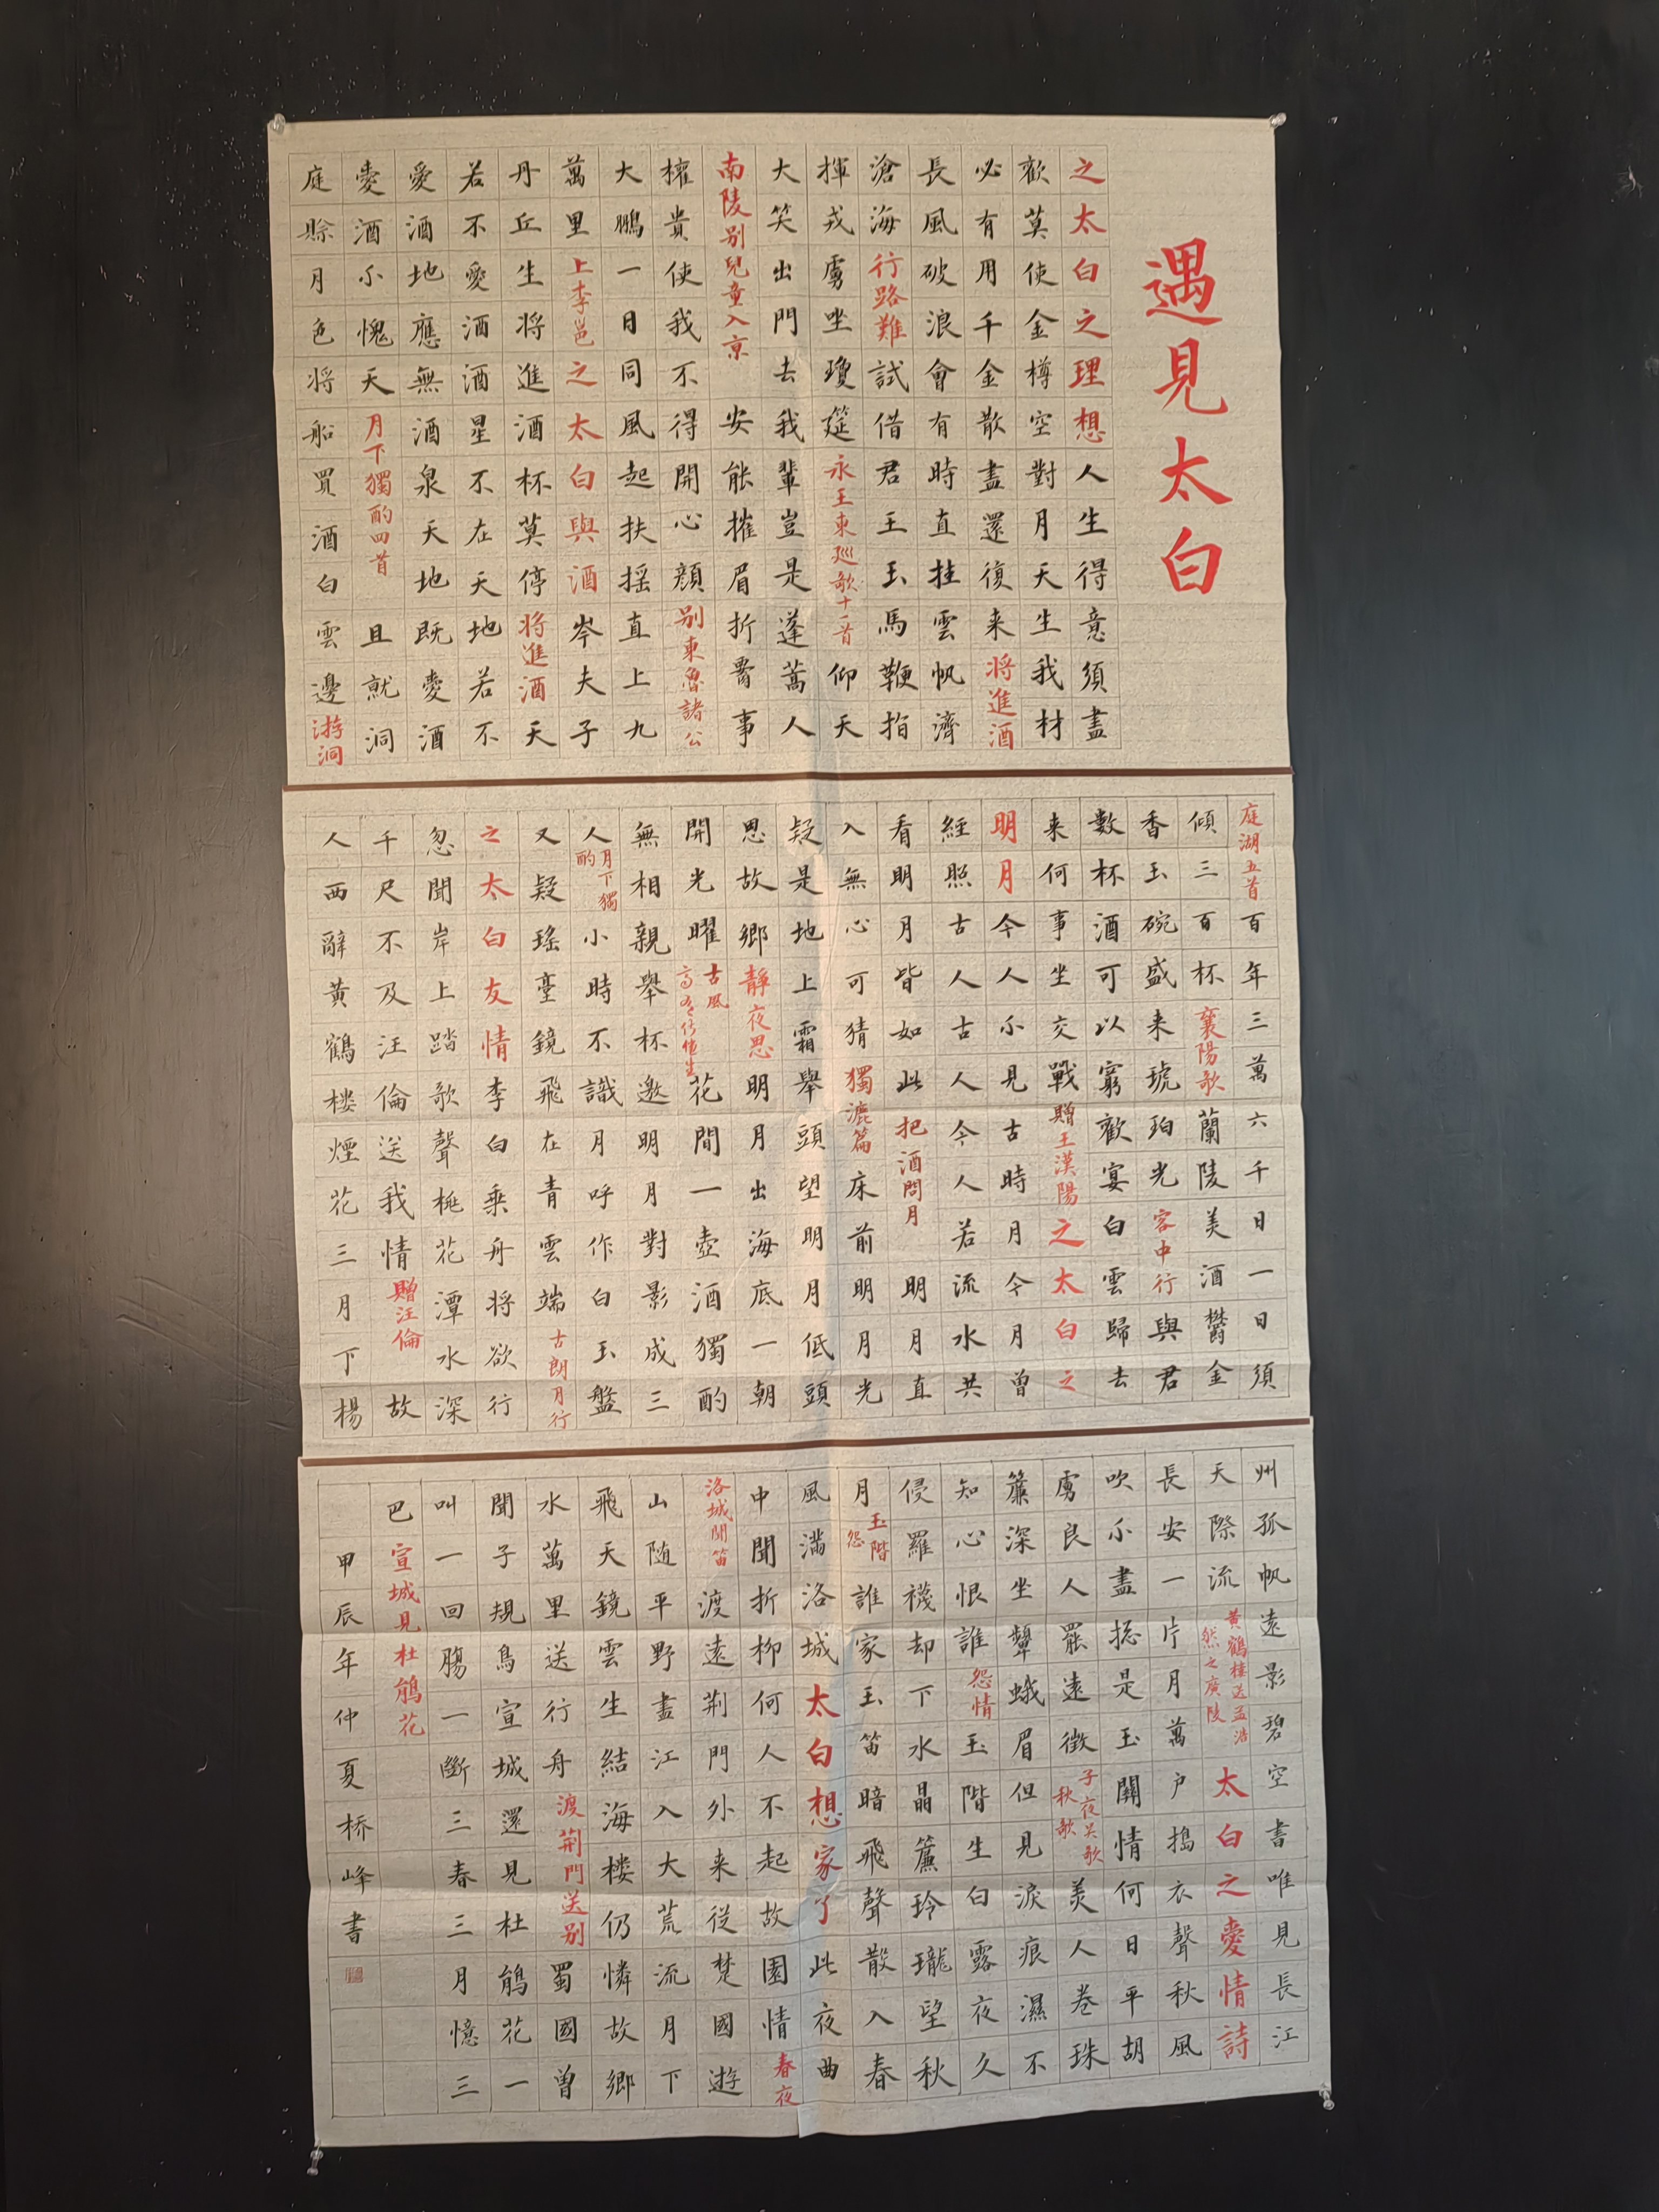 遇見太白
之太白之理想人生得意須盡
歡莫使金樽空對月天生我材
必有用千金散盡還復来將進酒
長風破浪會有時直挂雲帆濟
滄海行路難試借君王玉馬鞭指
揮戎虜坐瓊筵永王東巡歌十一首仰天
大笑出門去我輩豈是蓬蒿人
南陵别兒童入京安能摧眉折署事
權貴使我不得開心顏别東魯諸公
大鵬一日同風起扶摇直上九
萬里上李邕之太白與酒岑夫子
丹丘生将進酒杯莫停将進酒天
若不愛酒酒星不在天地若不
愛酒地應無酒泉天地既愛酒
愛酒不愧天月下獨酌四首且就洞
庭賒月色将船買酒白雲邊游洞
庭湖五首百年三萬六千日一日須
傾三百杯襄陽歌蘭陵美酒鬱金
香玉碗盛来琥珀光客中行與君
數杯酒可以窮歡宴白雲歸去
来何事坐交戰贈王漢陽之太白之
明月今人不見古時月今月曾
經照古人古人今人若流水共
看明月皆如此把酒問月明月直
入無心可猜獨漉篇床前明月光
疑是地上霜舉頭望明月低頭
思故鄉靜夜思明月出海底一朝
開光曜古風花間一壺酒獨酌
無相親舉杯邀明月對影成三
人月下獨酌小時不識月呼作白玉盤
又疑瑤臺鏡飛在青雲端古朗月行
之太白友情李白乘舟将欲行
忽聞岸上踏歌聲桃花潭水深
千尺不及汪倫送我情贈汪倫故
人西辭黃鶴樓煙花三月下楊
州孤帆遠影碧空書唯見長江
天際流黄鶴樓送孟浩然之廣陵太白之愛情詩
長安一片月萬户搗衣聲秋風
吹不盡總是玉關情何日平胡
虜良人罷遠徵子夜吴歌秋歌美人卷珠
簾深坐顰蛾眉但見淚痕濕不
知心恨誰怨情玉階生白露夜久
侵羅襪却下水晶簾玲瓏望秋
月玉階怨誰家玉笛暗飛聲散入春
風滿洛城太白想家了此夜曲
中聞折柳何人不起故園情春夜
洛城聞笛渡遠荆門外来從楚國遊
山随平野盡江入大荒流月下
飛天鏡雲生結海楼仍憐故鄉
水萬里送行舟渡荆門送别蜀國曾
聞子規鳥宣城還見杜鵑花一
叫一回腸一斷三春三月憶三
巴宣城見杜鵑花
甲辰年仲夏桥峰書